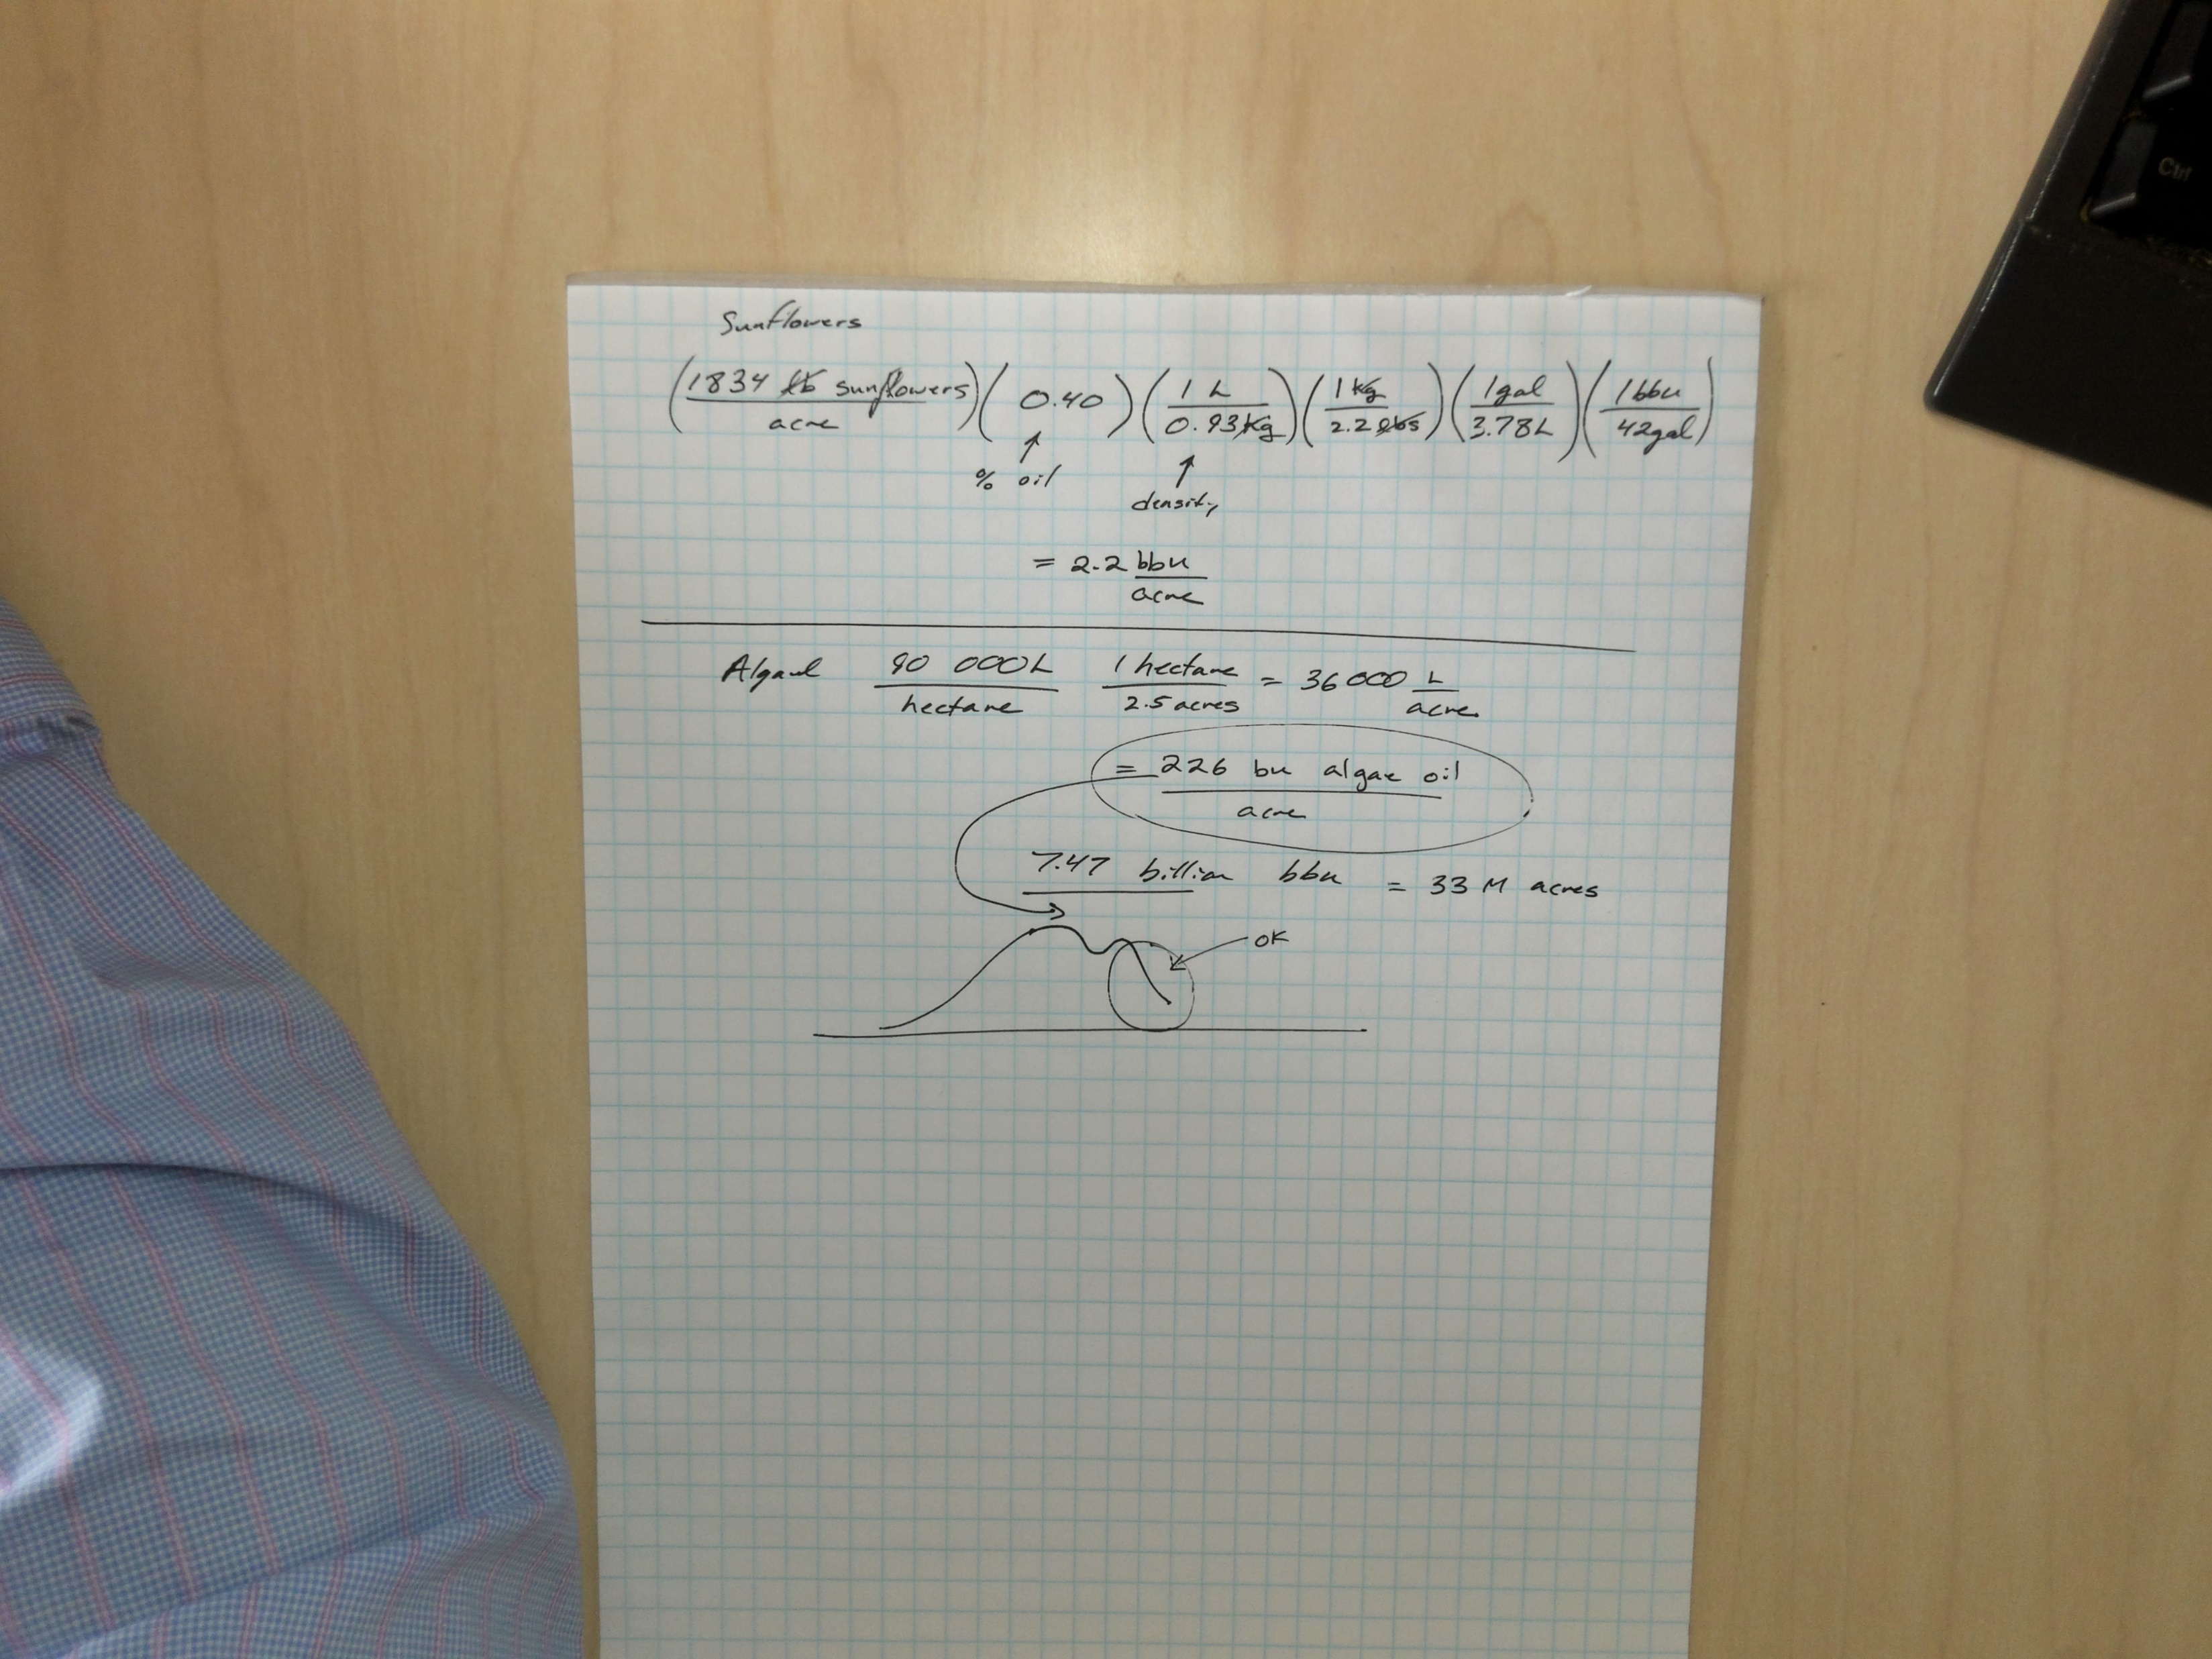 Sunflowers
(1834 lb sunflowers / acre) (0.40) (1 L / 0.93 kg) (1 kg / 2.2 lbs) (1 gal / 3.78 L) (1 bbl / 42 gal)
↑ % oil ↑ density
= 2.2 bbl / acre
Algael 90 000 L / hectare 1 hectare / 2.5 acres = 36000 L / acre
= 226 bbl algae oil / acre
7.47 billion bbl = 33 M acres
OK
Ctrl